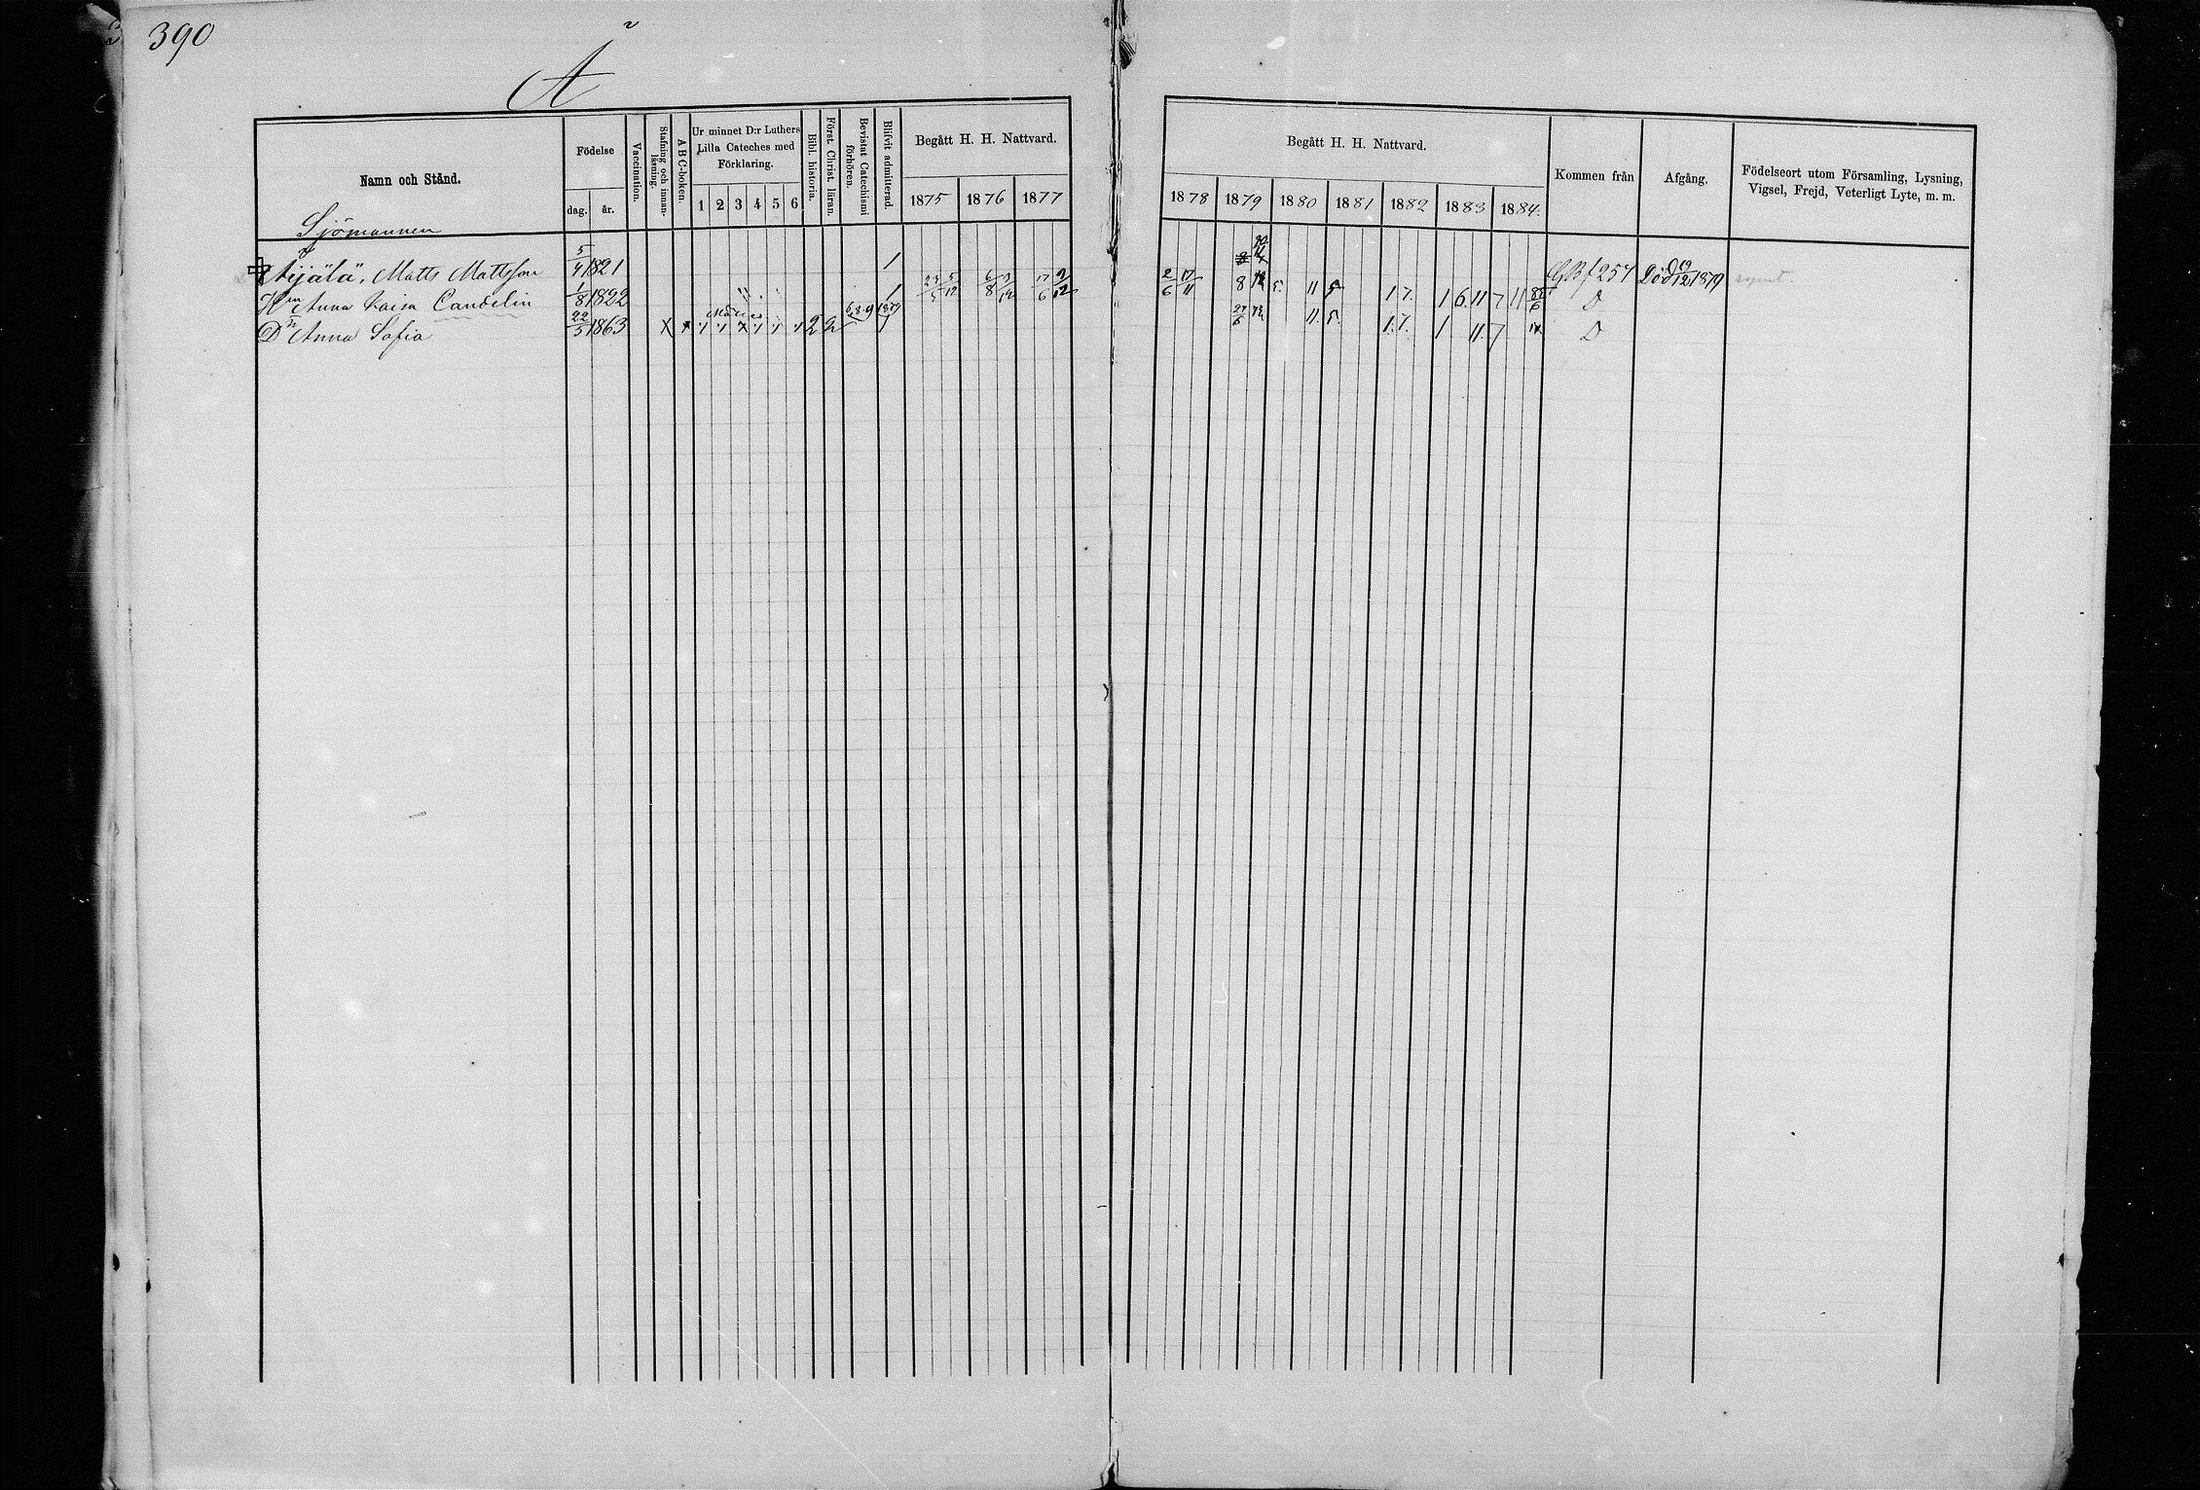 390
A
Namn och Stånd.
Födelse
dag. år.
Vaccination.
Stafning och innan-läsning.
A B C-boken.
Ur minnet D:r Luthers Lilla Cateches med Förklaring.
1 2 3 4 5 6
Bibl. historia.
Först. Christ. läran.
Bevistat Catechismi förhören.
Blifvit admitterad.
Begått H. H. Nattvard.
1875 1876 1877
Begått H. H. Nattvard.
1878 1879 1880 1881 1882 1883 1884.
Kommen från
Afgång.
Födelseort utom Församling, Lysning, Vigsel, Frejd, Veterligt Lyte, m. m.
Sjömannen
Äijälä, Matts Mattsson 5/4 1821 1 Död 19/12 1879
Hn Anna Caisa Candelin 1/8 1822 1 23/5 5/12 6/8 3/12 17/6 2/12 2/6 17/11 8 5. 11 5. 1 7. 1 6. 11 7 11 D
Dn Anna Sofia 22/5 1863 x 2 2 6 8 9 1879 1 11. 5. 1. 7. 1 11. 7 D